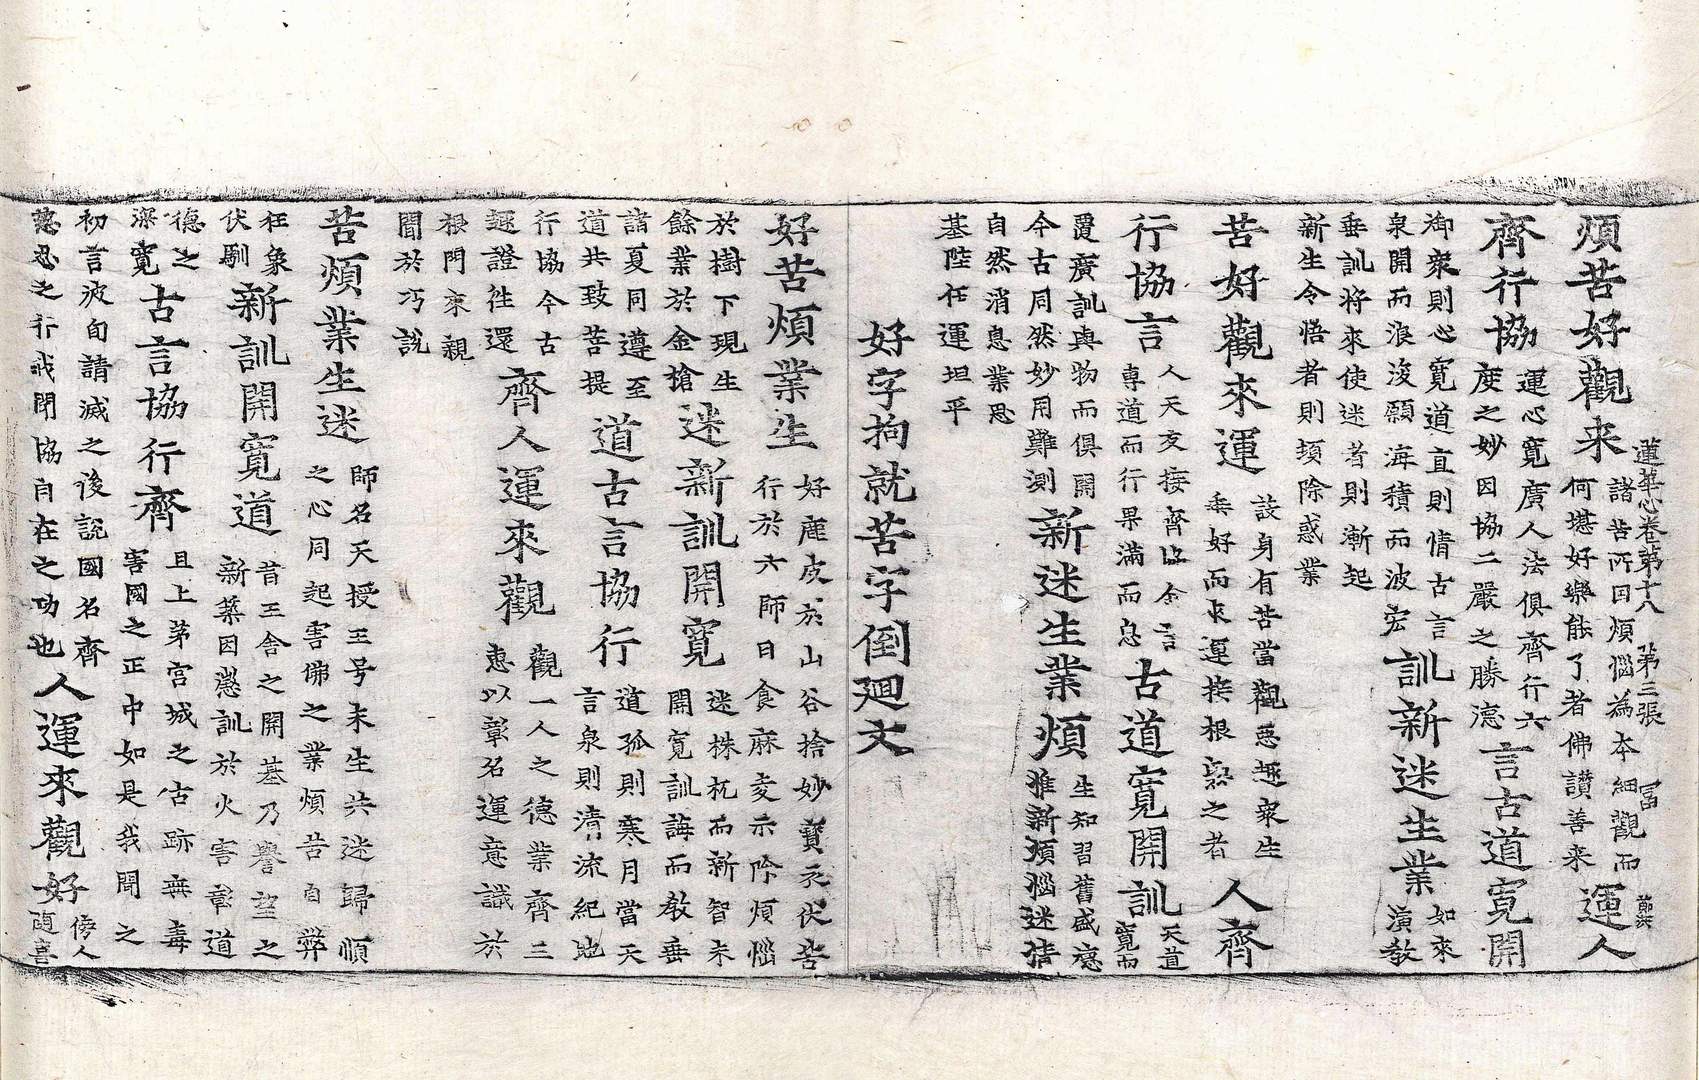 蓮華心卷苐十八 苐三張 冨
煩苦好觀来 諸苦所因煩惱為本細觀而 何堪好樂能了者佛讃善来 運人
齊行協 運心寛廣人法俱齊行六 度之妙因協二嚴之勝德 言古道寛開
御衆則心寛道直則情古言 泉開而浪浚願海積而波宏 訓新迷生業 如來 演教
垂訓将來使迷者則漸起 新生令悟者則頓除惑業
苦好觀來運 設身有苦當觀惡趣衆生 垂好而求運接根熟之者 人齊
行協言 人天交接齊協金言 専道而行果滿而息 古道寛開訓 天道 寛而
覆廣訓與物而俱開 今古同然妙用難測 新迷生業煩 生知習舊盛德 惟新煩惱迷情
自然消息業思 基陛任運坦平
好字拘就苦字倒廻文
好苦煩業生 好鹿皮於山谷捨妙寶衣伏苦 行於六師日食麻麦示除煩惱
於樹下現生 餘業於金搶 迷新訓開寛 迷株杌而新智未 開寛訓誨而教垂
諸夏同遵至 道共致菩提 道古言協行 道孤則寒月當天 言泉則清流紀地
行協今古 趣證往還 齊人運來觀 觀一人之德業齊三 惠以彰名運意識於
根門來親 聞於巧說
苦煩業生迷 師名天授王号未生共迷歸順 之心同起害佛之業煩苦自弊
狂象 伏馴 新訓開寛道 昔王舍之開基乃譽望之 新築因懲訓於火害章道
德之 深寛 古言協行齊 且上茅宫城之古跡無毒 害國之正中如是我聞之
初言波旬請滅之後說國名齊 慈忍之行我聞協自在之功也 人運來觀好 傍人 隨喜